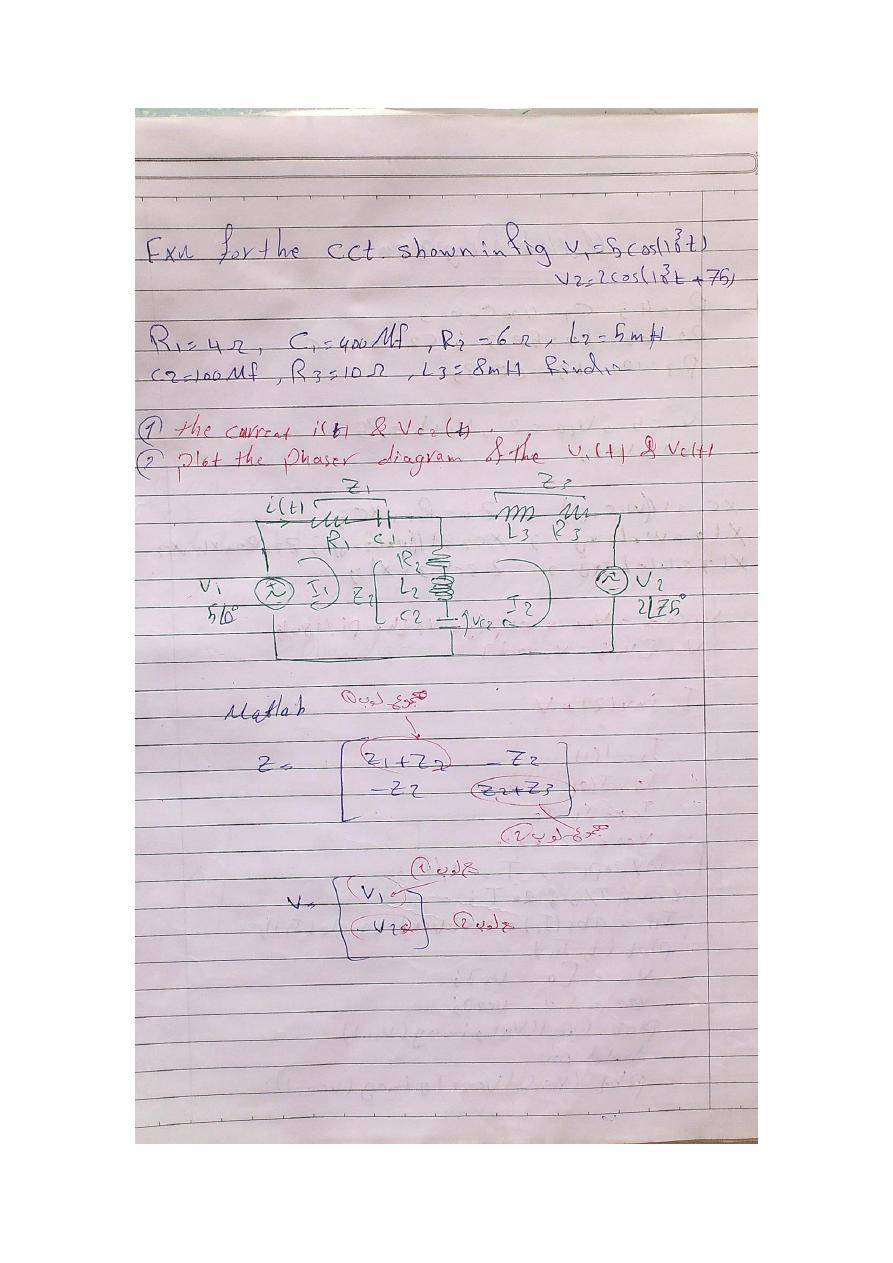 Exn for the cct. shown in fig v1=5cos(10³t)
v2=2cos(10³t+75)
R1=4Ω, C1=400Mf, R2=6Ω, L2=5mH
C2=100Mf, R3=10Ω, L3=8mH find,
① the current i(t) & Vc2(t).
② plot the phaser diagram of the v1(t) & Vc(t)
Z1 Z3
i(t)
R1 C1 L3 R3
R2
V1 I1 Z2 L2 I2 V2
5∠0° C2 Vc2 2∠75°
Matlab مجموع لوب ①
Z= [ Z1+Z2 -Z2
-Z2 Z2+Z3 ]
مجموع لوب ②
لوب ①
V= [ V1
-V2 ] لوب ②